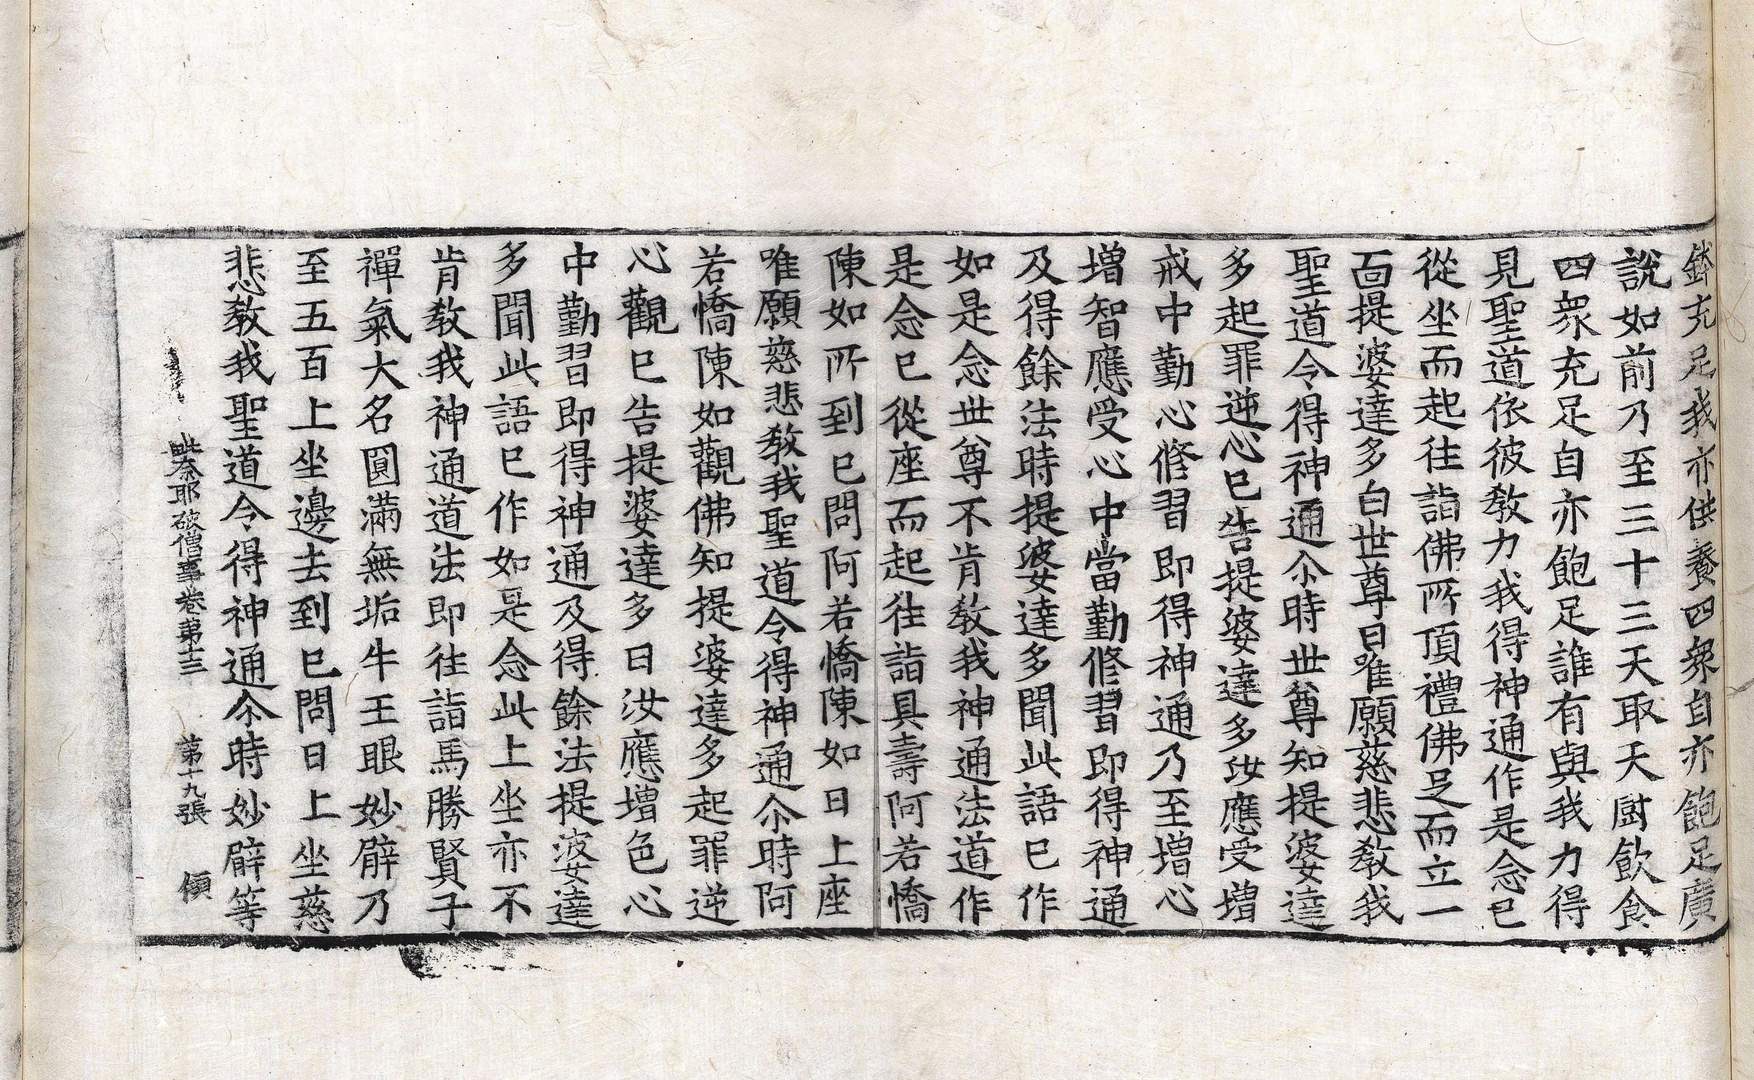 鉢充足我亦供養四衆自亦飽足廣
說如前乃至三十三天取天厨飮食
四衆充足自亦飽足誰有與我力得
見聖道依彼教力我得神通作是念已
從坐而起往詣佛所頂禮佛足而立一
面提婆達多白世尊曰唯願慈悲教我
聖道令得神通尒時世尊知提婆達
多起罪逆心已告提婆達多汝應受增
戒中勤心修習即得神通乃至增心
增智應受心中當勤修習即得神通
及得餘法時提婆達多聞此語已作
如是念世尊不肯教我神通法道作
是念已從座而起往詣具壽阿若憍
陳如所到已問阿若憍陳如曰上座
唯願慈悲教我聖道令得神通尒時阿
若憍陳如觀佛知提婆達多起罪逆
心觀已告提婆達多曰汝應增色心
中勤習即得神通及得餘法提婆達
多聞此語已作如是念此上坐亦不
肯教我神通道法即往詣馬勝賢子
禪氣大名圓滿無垢牛王眼妙臂乃
至五百上坐邊去到已問曰上坐慈
悲教我聖道令得神通尒時妙臂等
毗奈耶破僧事卷第十三　第十九張　傾